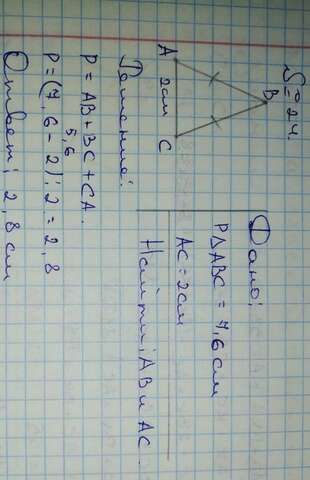 № 24.
B
A
2см
C
Дано:
P△ABC = 7,6 см
AC = 2см
Найти: AB и AC.
Решение:
P = AB + BC + CA.
5,6
P = (7,6 - 2) : 2 = 2,8
Ответ: 2,8 см